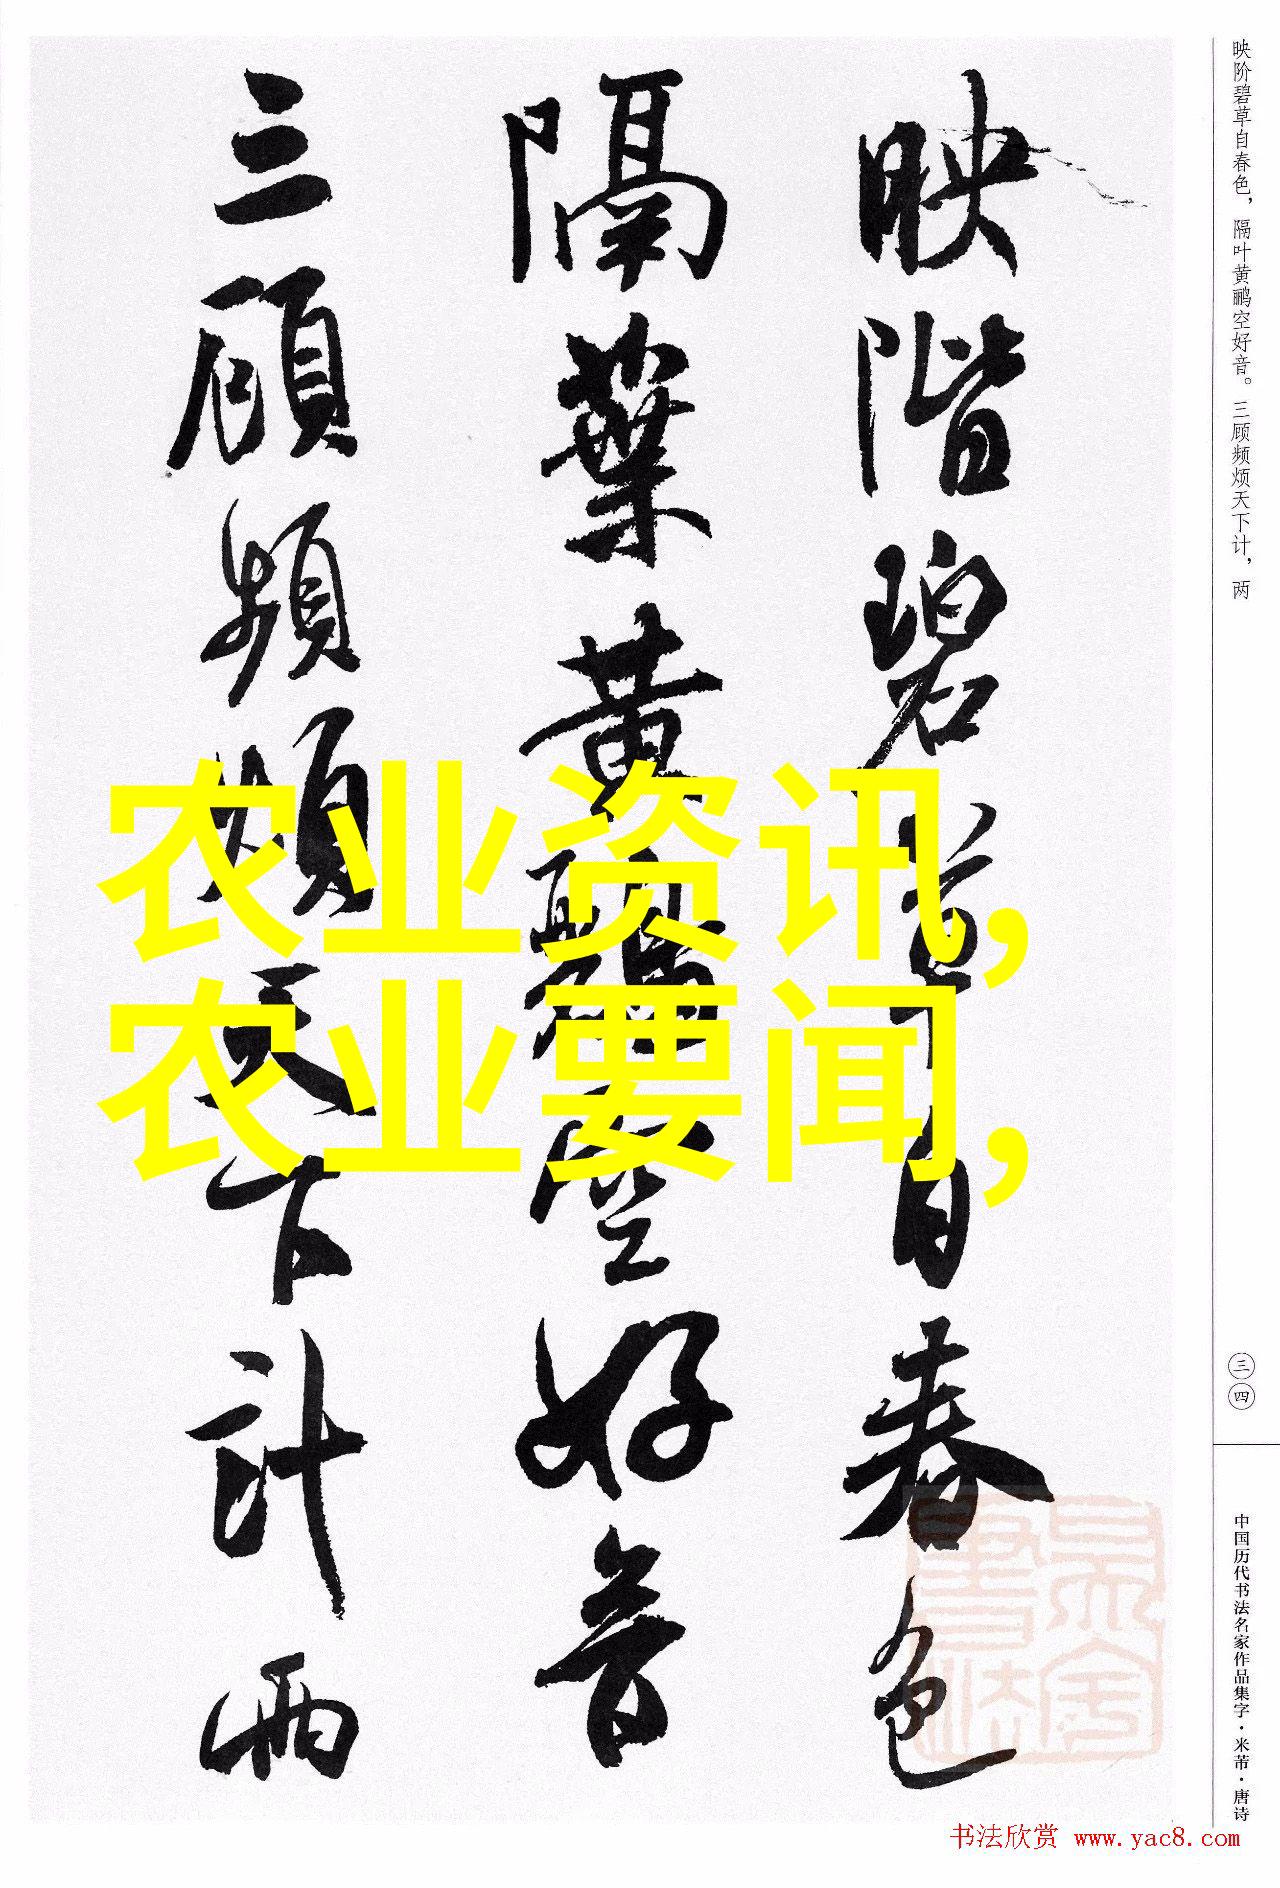 映階碧草自春色
隔葉黄鸝空好音
三顧頻煩天下計兩
农业资讯，
农业要闻，
映阶碧草自春色，隔叶黄鹂空好音。三顾频烦天下计，两
三四
中国历代书法名家作品集字·米芾·唐诗
书法欣赏 www.yac8.com